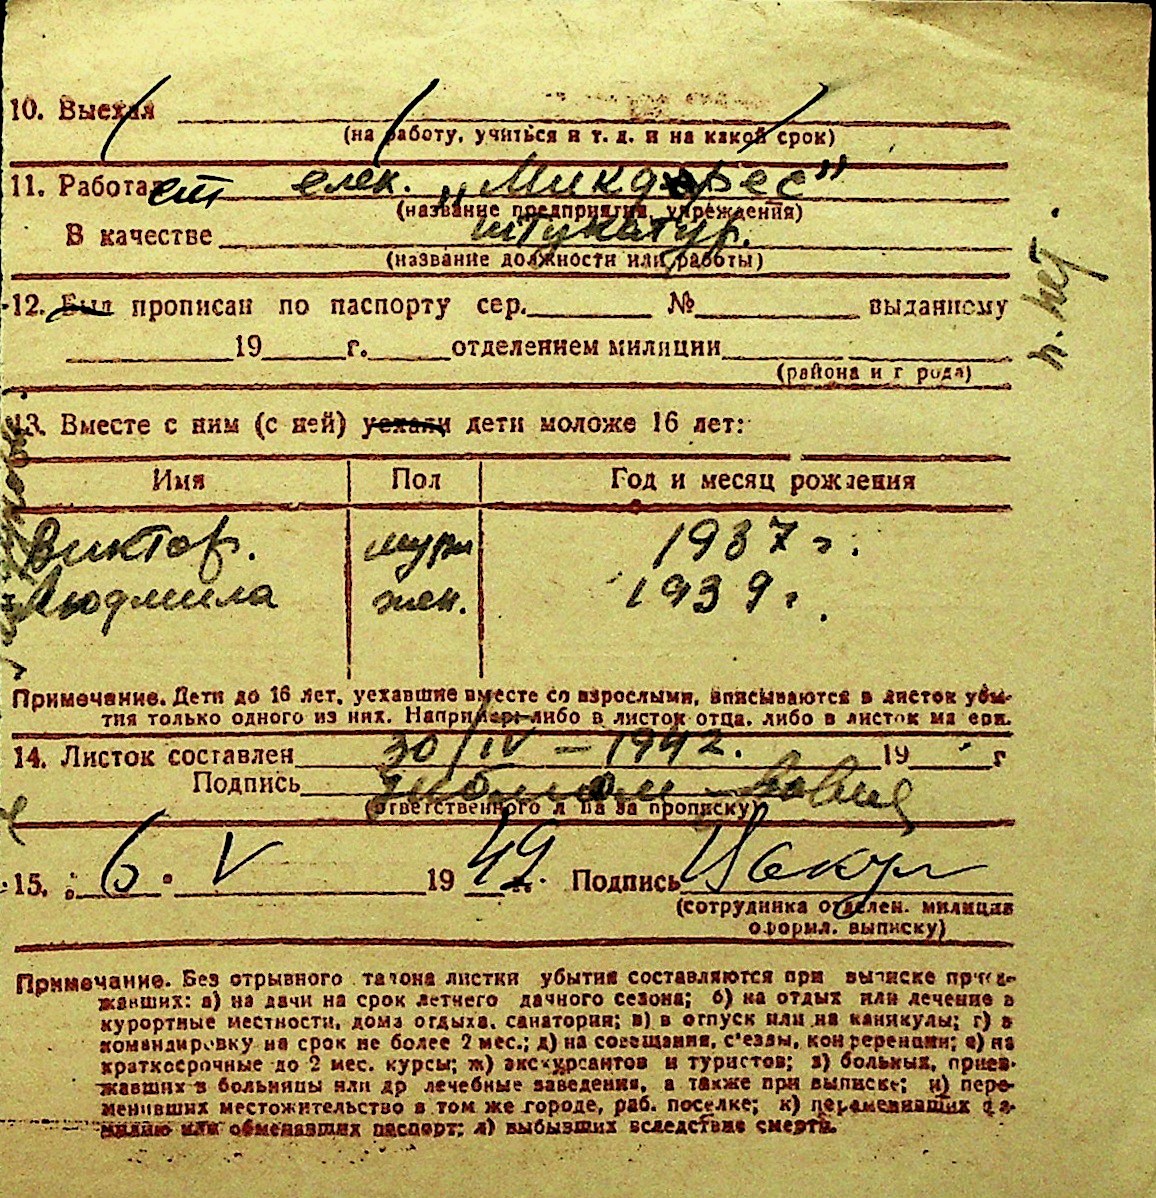 10. Выехал
(на работу, учиться и т. д. и на какой срок)
11. Работает елек. „Микд
(название предприятия, учреждения)
В качестве штукатур.
(название должности или работы)
12. Был прописан по паспорту сер. № выданному
19 г. отделением милиции
(района и города)
п. нет.
13. Вместе с ним (с ней) уехали дети моложе 16 лет:
Имя Пол Год и месяц рождения
Виктор. муж 1937 г.
Людмила жен. 1939 г.
Примечание. Дети до 16 лет, уехавшие вместе со взрослыми, вписываются в листок убы-
тия только одного из них. Например: либо в листок отца, либо в листок матери.
14. Листок составлен 30/IV – 1942. 19 г
Подпись
(ответственного лица за прописку)
15. 6 V 1949. Подпись
(сотрудника отделен. милиции
оформл. выписку)
Примечание. Без отрывного талона листки убытия составляются при выписке приез-
жавших: а) на дачи на срок летнего дачного сезона; б) на отдых или лечение в
курортные местности, дома отдыха, санатории; в) в отпуск или на каникулы; г) в
командировку на срок не более 2 мес.; д) на совещания, с'езды, конференции; е) на
краткосрочные до 2 мес. курсы; ж) экскурсантов и туристов; з) больных, приез-
жавших в больницы или др лечебные заведения, а также при выписке; и) пере-
менивших местожительство в том же городе, раб. поселке; к) переменивших фа-
милию или обменявших паспорт; л) выбывших вследствие смерти.